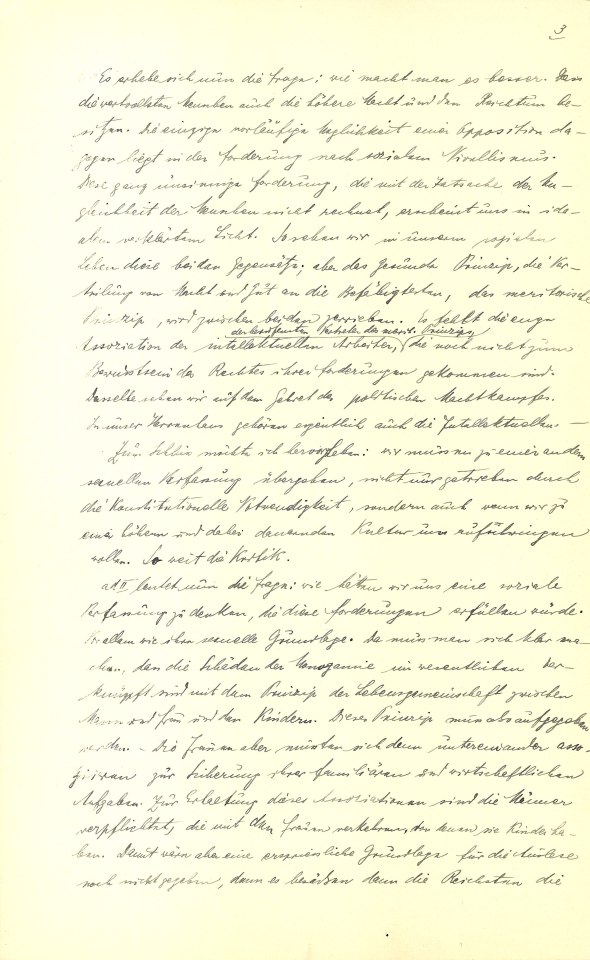 3
Es erhebe sich nun die Frage: wie macht man es besser. Dass
die wertvollsten Menschen auch die höhere Macht und den Reichtum be-
sitzen. Die einzige vorläufige Möglichkeit einer Opposition da-
gegen liegt in der Forderung nach sozialem Nivellismus.
Diese ganz unsinnige Forderung, die mit der Tatsache der Un-
gleichheit der Menschen nicht rechnet, erscheint uns in ide-
alem verklärtem Licht. So sehen wir in unserm sozialen
Leben diese beiden Gegensätze; aber das gesunde Prinzip, die Ver-
teilung von Macht und Gut an die Befähigtesten, das meritorische
Prinzip, wird zwischen beiden zerrieben. Es fehlt die enge
der berufensten Vertreter des merit. Prinzips
Assoziation der intellektuellen Arbeiter, die noch nicht zum
Bewusstsein des Rechtes ihrer Forderungen gekommen sind.
Dasselbe sehen wir auf dem Gebiet des politischen Machtkampfes.
In unser Herrenhaus gehören eigentlich auch die Intellektuellen –
Zum Schluss möchte ich hervorheben: wir müssen zu einer andern
sexuellen Verfassung übergehen, nicht nur getrieben durch
die Konstitutionelle Notwendigkeit, sondern auch wenn wir zu
einer höhern und dabei dauernden Kultur uns aufschwingen
wollen. So weit die Kritik.
ad II lautet nun die Frage: wie hätten wir uns eine soziale
Verfassung zu denken, die diese Forderungen erfüllen würde.
Vor allem wie ihre sexuelle Grundlage. Da muss man sich klar ma-
chen, dass die Schäden der Monogamie im wesentlichen ver-
knüpft sind mit dem Prinzip der Lebensgemeinschaft zwischen
Mann und Frau und den Kindern. Dieses Prinzip muss also aufgegeben
werden. – Die Frauen aber müssten sich denn untereinander asso-
ziieren zur Sicherung ihrer familiären und wirtschaftlichen
Aufgaben. Zur Erhaltung dieser Assoziationen sind die Männer
verpflichtet, die mit den Frauen verkehren, von denen sie Kinder ha-
ben. Damit wäre aber eine erspriessliche Grundlage für die Auslese
noch nicht gegeben, denn es besässen dann die Reichsten die